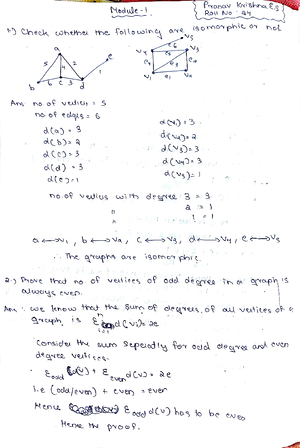 Module-1
Pranav Krishna E S
Roll No: 44
1) Check whether the following are isomorphic or not
a
b
c
d
e
5
1
2
6
3
V5
V4
V3
V1
e6
e5
e3
e1
Ans no of vertices = 5
no of edges = 6
d(a) = 3
d(b) = 2
d(c) = 3
d(d) = 3
d(e) = 1
d(v1) = 3
d(v2) = 2
d(v3) = 3
d(v4) = 3
d(v5) = 1
no. of vertices with degree 3 = 3
" 2 = 1
" 1 = 1
a ↔ v1, b ↔ v2, c ↔ v3, d ↔ v4, e ↔ v5
∴ The graphs are isomorphic.
2.) Prove that no. of vertices of odd degree in a graph is
always even.
Ans : We know that the sum of degrees, of all vertices of a
graph is Σ d(vi) = 2e
Consider the sum seperatly for odd degree and even
degree vertices.
Σodd d(v) + Σeven d(v) = 2e
i.e (odd/even) + even = even
Hence Σodd d(v) has to be even
Hence the proof.